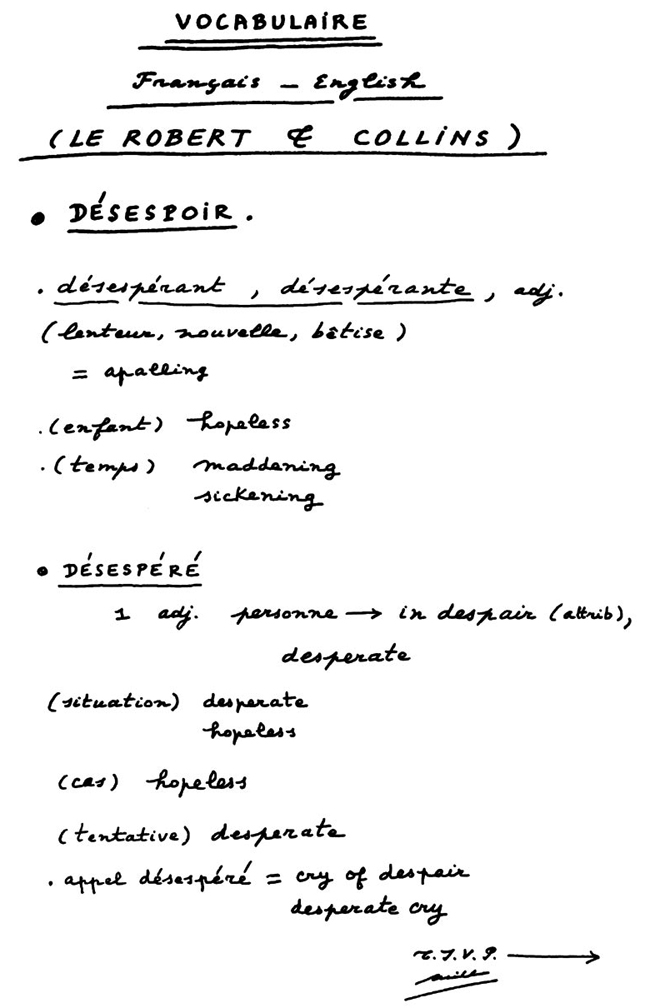 VOCABULAIRE
Français - English
(LE ROBERT & COLLINS)
• DÉSESPOIR.
. désespérant, désespérante, adj.
(lenteur, nouvelle, bêtise)
= apalling
. (enfant) hopeless
. (temps) maddening
sickening
• DÉSESPÉRÉ
1 adj. personne → in despair (attrib),
desperate
(situation) desperate
hopeless
(cas) hopeless
(tentative) desperate
. appel désespéré = cry of despair
desperate cry
T.S.V.P. →